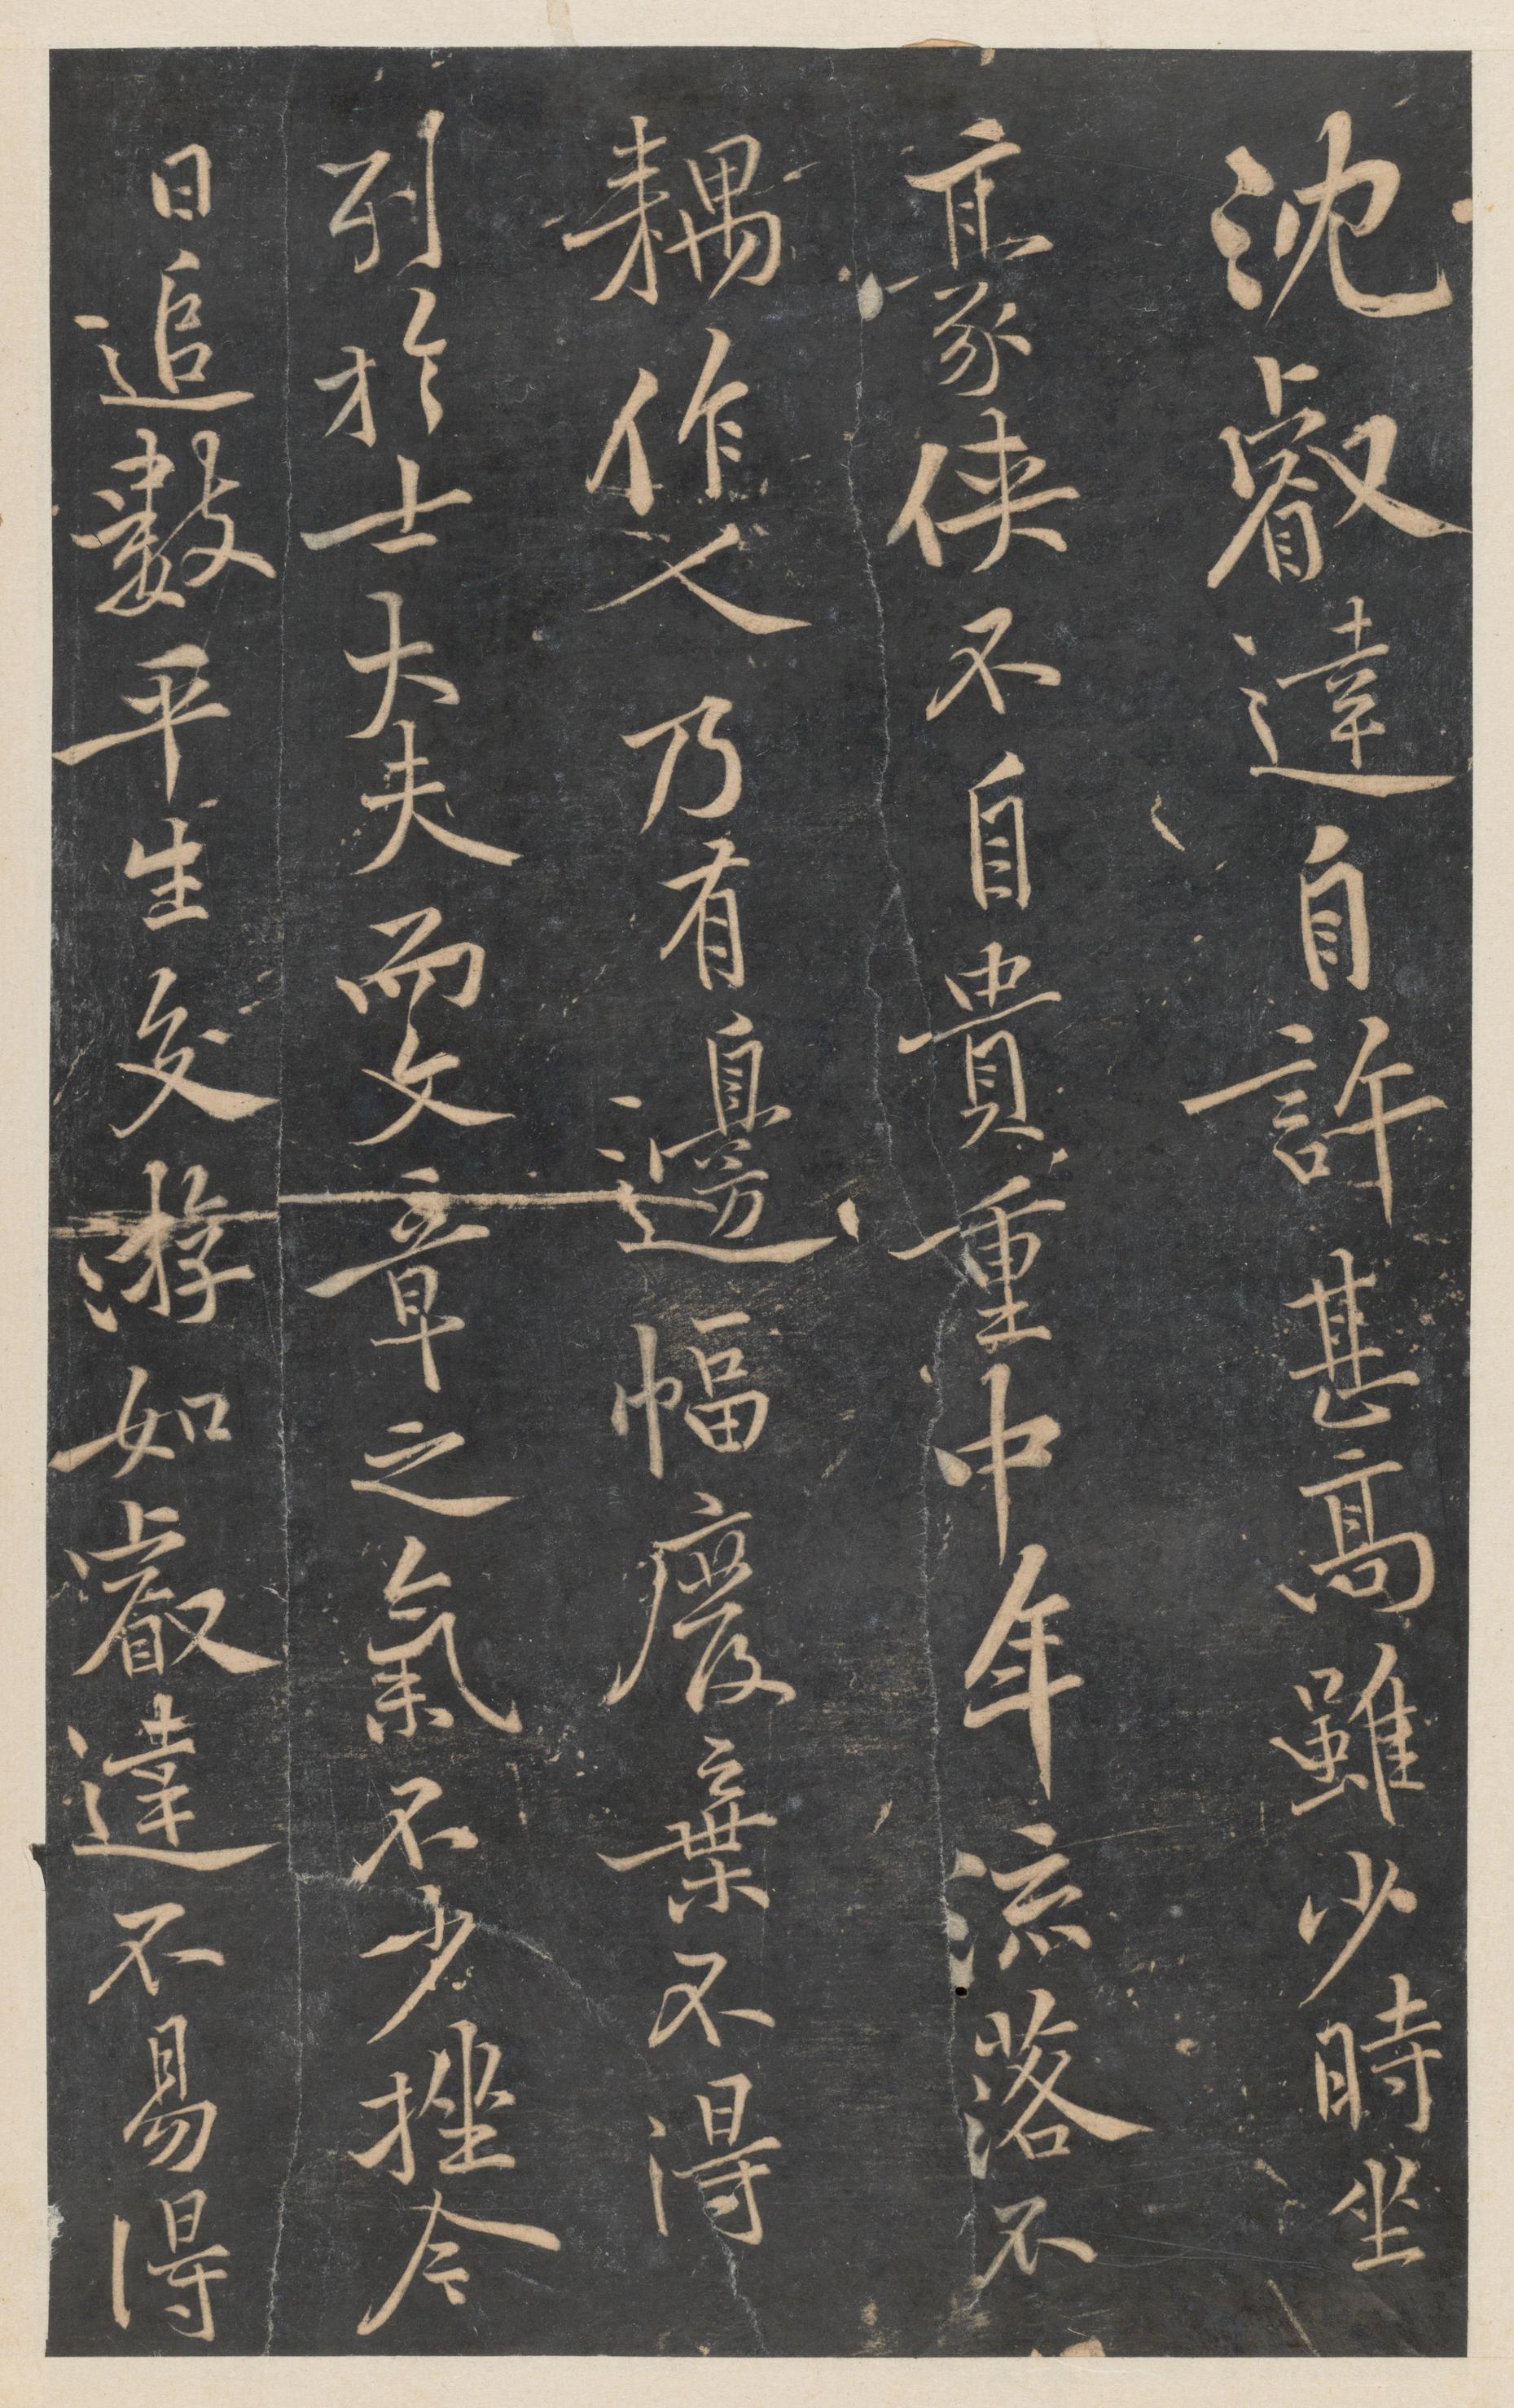 沈叡達自許甚高雖少時坐
豪俠不自貴重中年流落不
耦作人乃有邊幅廢棄不得
列於士大夫而文章之氣不少挫今
日追數平生交游如叡達不易得